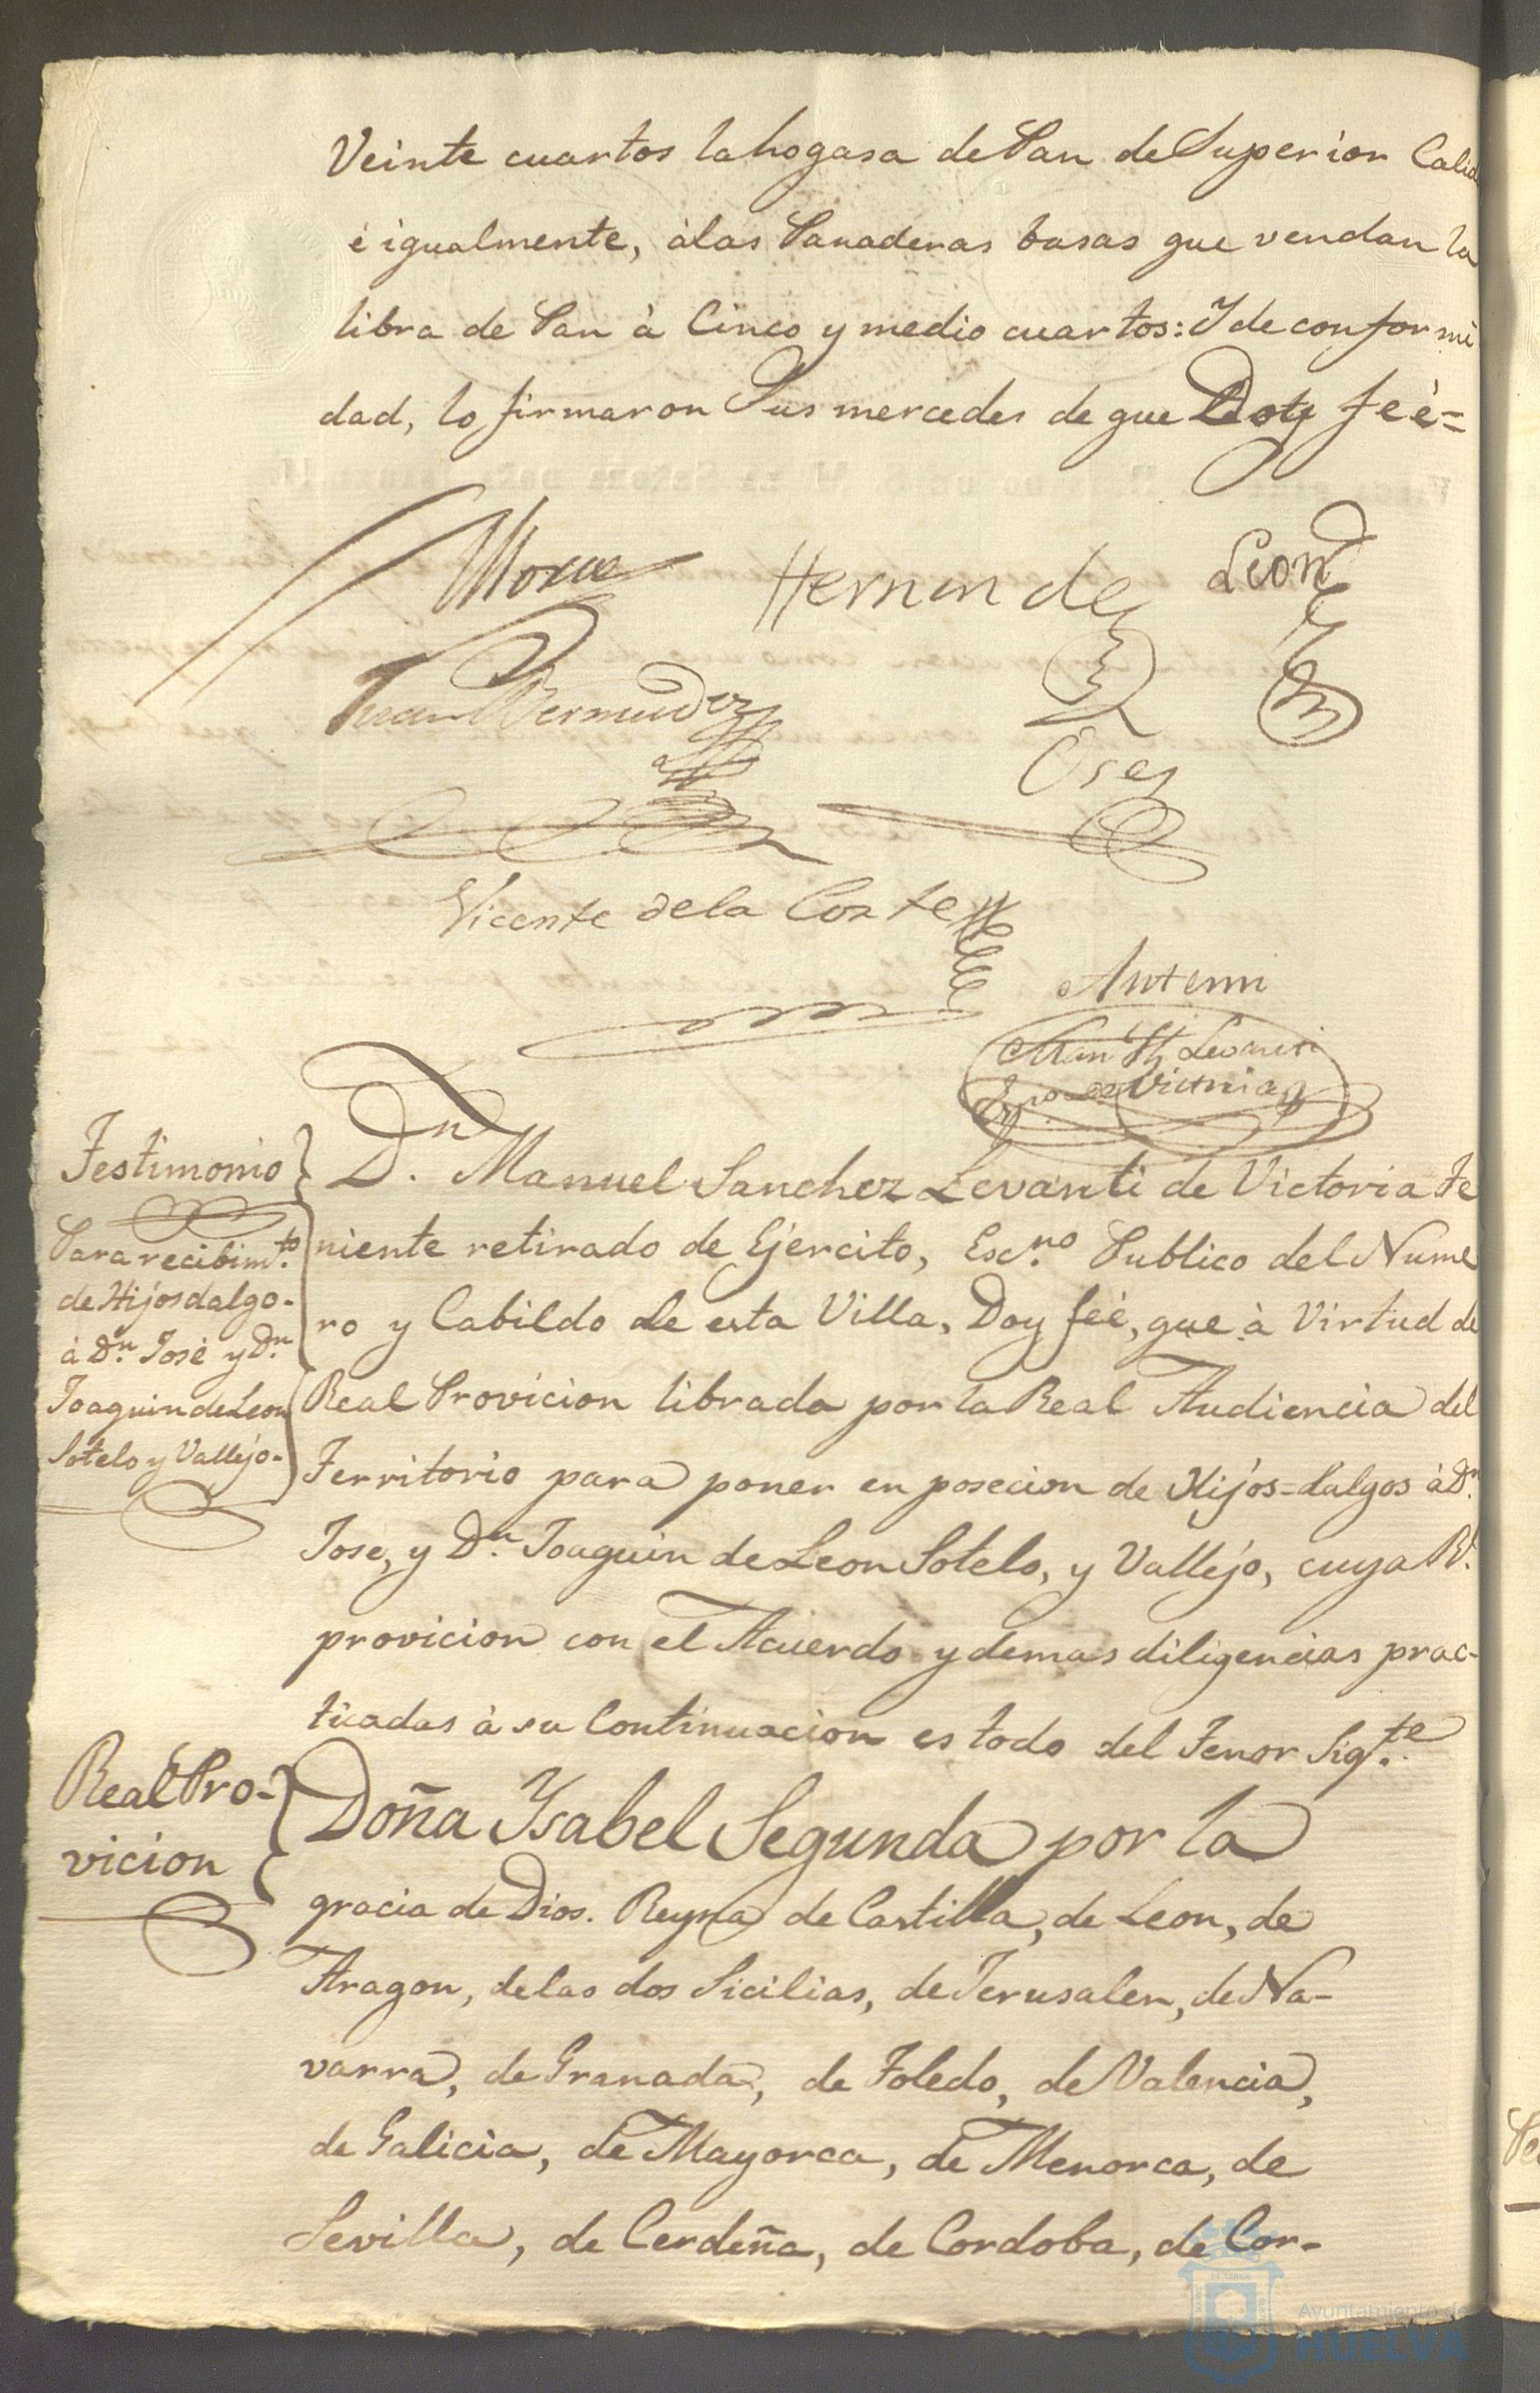 Veinte cuartos la hogasa de Pan de Superior Calid
é igualmente, à las Panaderas basas que vendan la
libra de Pan à Cinco y medio cuartos: Y de conformi
dad, lo firmaron Sus mercedes de que Doy feè=
Hernandez Leon
Juan Bermudez
Oses
Vicente de la Corte
Antemi
Man
Testimonio
Para recibim.to
de Hijosdalgo-
à D.n José y D.n
Joaquin de Leon
Sotelo y Vallejo-
D.n Manuel Sanchez Levanti de Victoria Te
niente retirado de Ejercito, Esc.no Publico del Nume
ro y Cabildo de esta Villa, Doy feè, que à Virtud de
Real Provicion librada por la Real Audiencia del
Territorio para poner en posecion de Hijos=dalgos à D.n
Jose, y D.n Joaquin de Leon Sotelo, y Vallejo, cuya R.l
provicion con el Acuerdo y demas diligencias prac-
ticadas à su Continuacion es todo del Tenor Sig.te
Real Pro-
vicion
Doña Ysabel Segunda por la
gracia de Dios. Reyna de Castilla, de Leon, de
Aragon, delas dos Sicilias, de Jerusalen, de Na-
varra, de Granada, de Toledo, de Valencia,
de Galicia, de Mayorca, de Menorca, de
Sevilla, de Cerdeña, de Cordoba, de Cor-
Ayuntamiento de
HUELVA